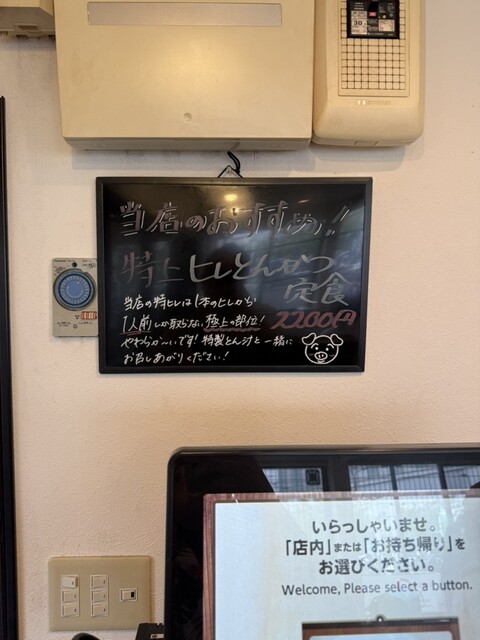 当店のおすすめ!!
特上ヒレとんかつ
定食
当店の特ヒレは1本のヒレから
1人前しか取らない極上の部位!
2200円
やわらか〜いです!特製とん汁と一緒に
お召しあがりください!
いらっしゃいませ。
「店内」または「お持ち帰り」を
お選びください。
Welcome, Please select a button.